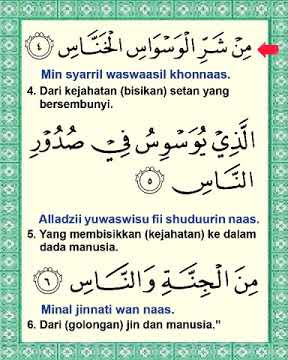 مِنْ شَرِّ الْوَسْوَاسِ الْخَنَّاسِ ٤
Min syarril waswaasil khonnaas.
4. Dari kejahatan (bisikan) setan yang
bersembunyi.
الَّذِيْ يُوَسْوِسُ فِيْ صُدُوْرِ
النَّاسِ ٥
Alladzii yuwaswisu fii shuduurin naas.
5. Yang membisikkan (kejahatan) ke dalam
dada manusia.
مِنَ الْجِنَّةِ وَالنَّاسِ ٦
Minal jinnati wan naas.
6. Dari (golongan) jin dan manusia."